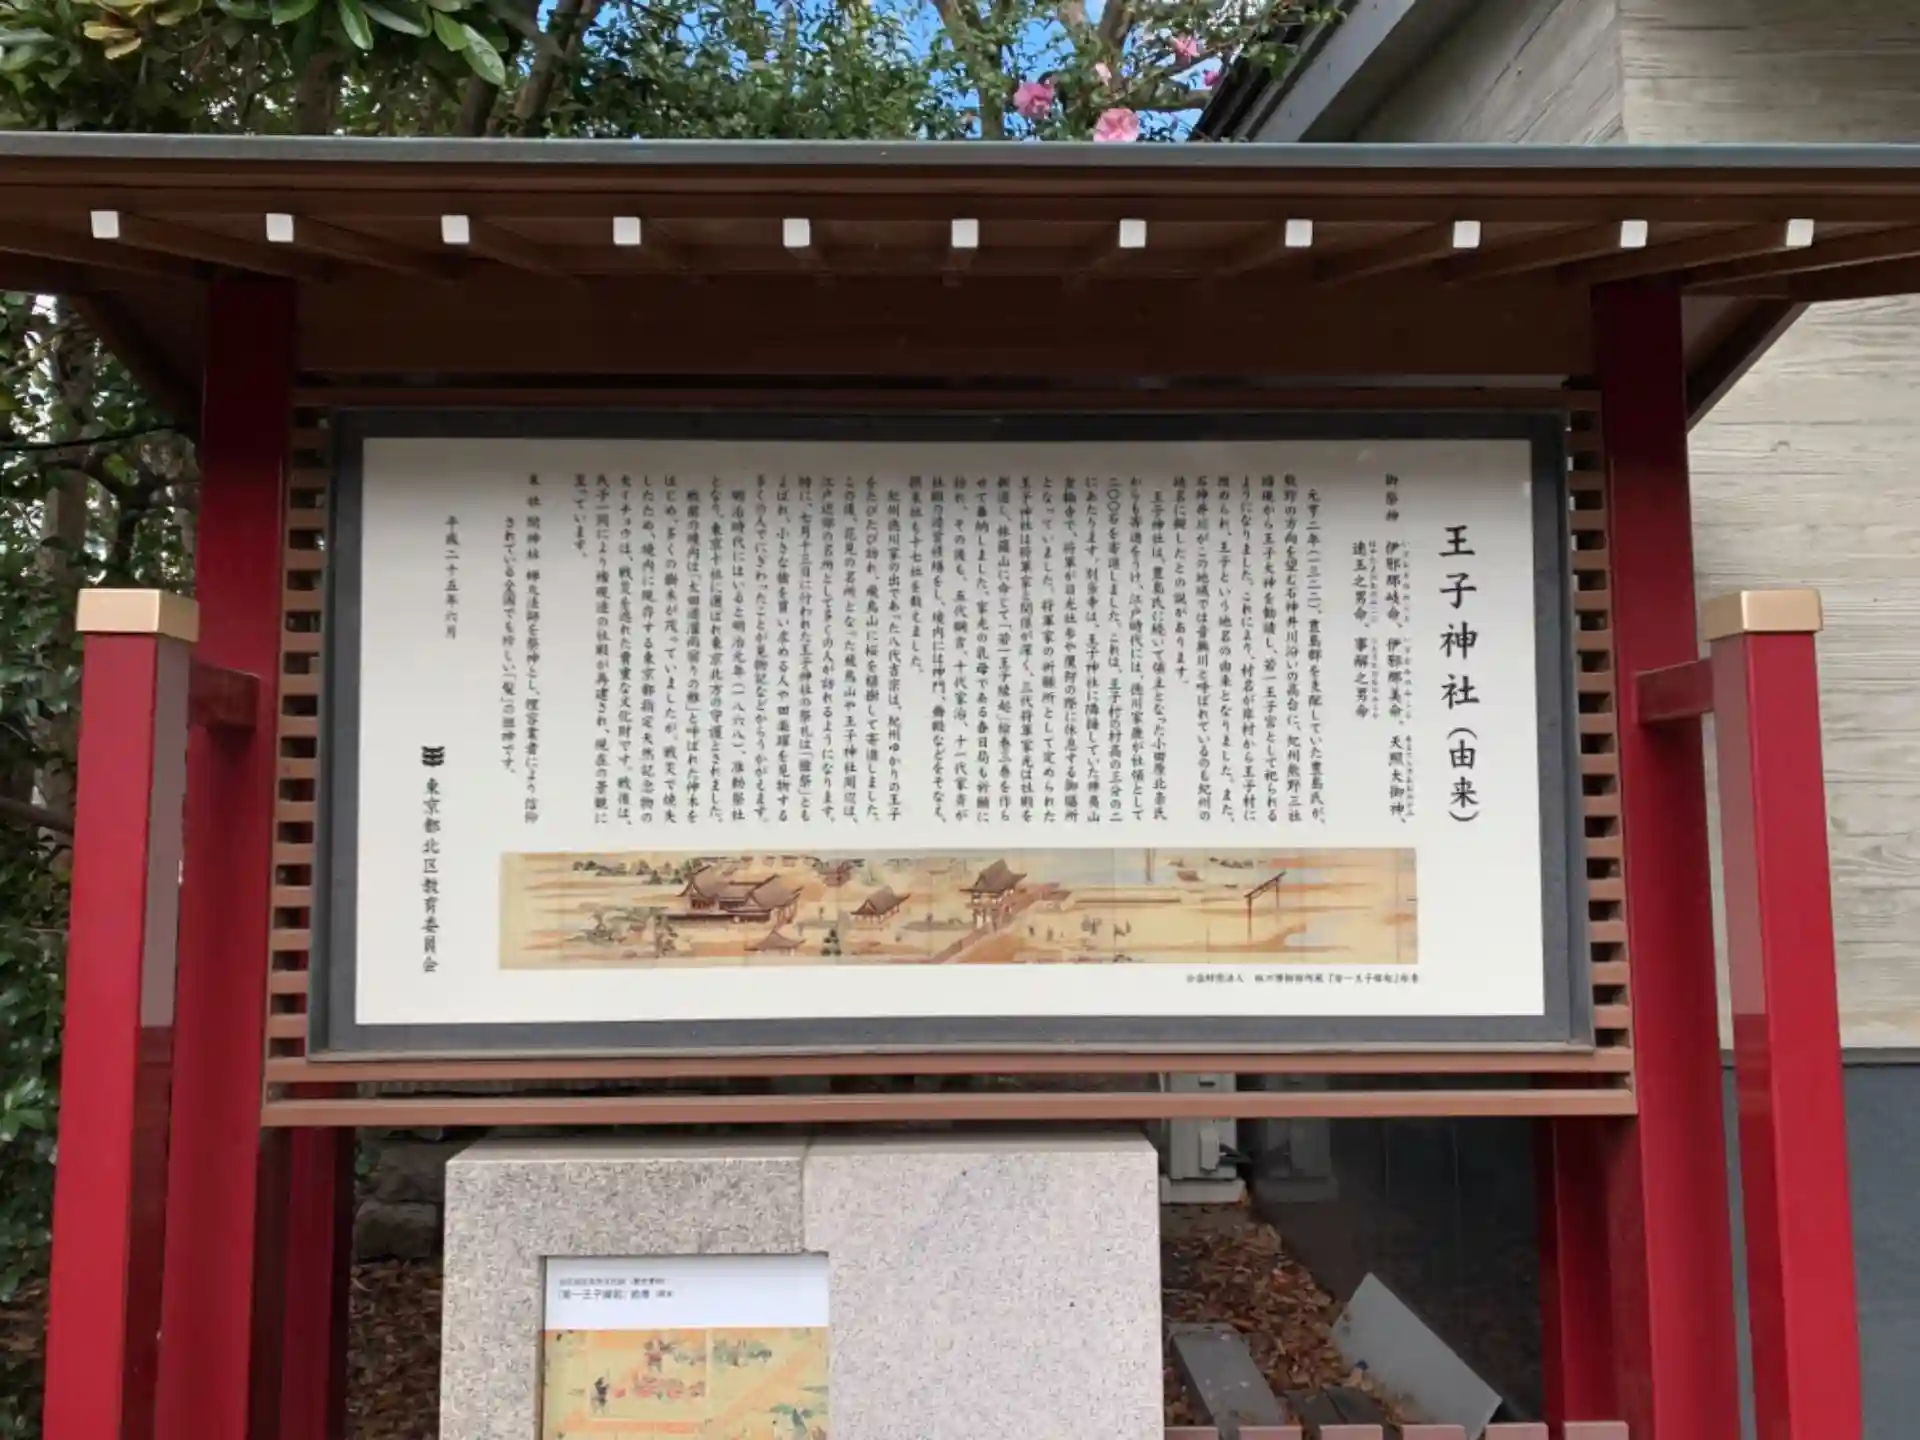 王子神社（由来）
御祭神　伊邪那岐命、伊邪那美命、天照大御神、
速玉之男命、事解之男命
元亨二年（一三二二）、豊島郡を支配していた豊島氏が、
熊野の方向を望む石神井川沿いの高台に、紀州熊野三社
権現から王子大神を勧請し、若一王子宮として祀られる
ようになりました。これにより、村名が岸村から王子村に
改められ、王子という地名の由来となりました。また、
石神井川がこの地域では音無川と呼ばれているのも紀州の
地名に擬したとの説があります。
王子神社は、豊島氏に続いて領主となった小田原北条氏
からも寄進をうけ、江戸時代には、徳川家康が社領として
二〇〇石を寄進しました。これは、王子村の村高の三分の二
にあたります。別当寺は、王子神社に隣接していた禅夷山
金輪寺で、将軍が日光社参や鷹狩の際に休息する御膳所
となっていました。将軍家の祈願所として定められた
王子神社は将軍家と関係が深く、三代将軍家光は社殿を
新造し、林羅山に命じて「若一王子縁起」絵巻三巻を作ら
せて奉納しました。家光の乳母である春日局も祈願に
訪れ、その後も、五代綱吉、十代家治、十一代家斉が
社殿の造営修繕をし、境内には神門、舞殿などをそなえ、
摂末社も十七社を数えました。
紀州徳川家の出であった八代吉宗は、紀州ゆかりの王子
をたびたび訪れ、飛鳥山に桜を植樹して寄進しました。
この後、花見の名所となった飛鳥山や王子神社周辺は、
江戸近郊の名所として多くの人が訪れるようになります。
特に、七月十三日に行われた王子神社の祭礼は「槍祭」とも
よばれ、小さな槍を買い求める人や田楽躍を見物する
多くの人でにぎわったことが見物記などからうかがえます。
明治時代にはいると明治元年（一八六八）、准勅祭社
となり、東京十社に選ばれ東京北方の守護とされました。
戦前の境内は「太田道灌雨宿りの椎」と呼ばれた神木を
はじめ、多くの樹木が茂っていましたが、戦災で焼失
したため、境内に現存する東京都指定天然記念物の
大イチョウは、戦災を逃れた貴重な文化財です。戦後は、
氏子一同により権現造の社殿が再建され、現在の景観に
至っています。
末社　関神社　蝉丸法師を祭神とし、理容業者により信仰
されている全国でも珍しい「髪」の祖神です。
平成二十五年六月
東京都北区教育委員会
「若一王子縁起」絵巻